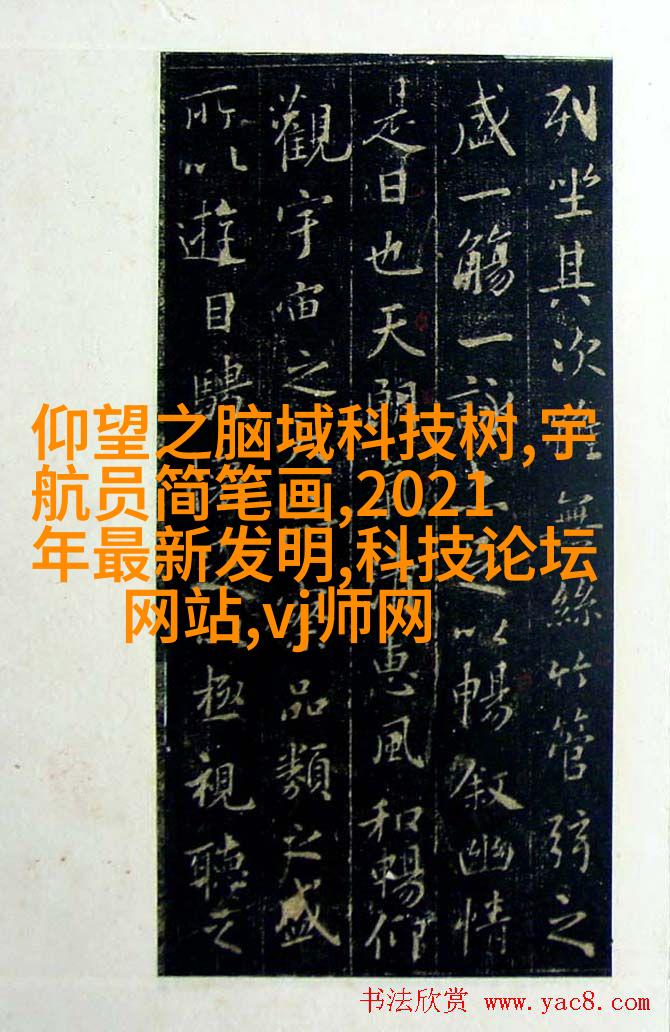 列坐其次雖無絲竹管弦之
盛一觴一詠以暢叙幽情
是日也天朗惠風和暢仰
觀宇宙之品類之盛
所以遊目騁極視聽之
仰望之脑域科技树,宇
航员简笔画,2021
年最新发明,科技论坛
网站,vj师网
书法欣赏 www.yac8.com